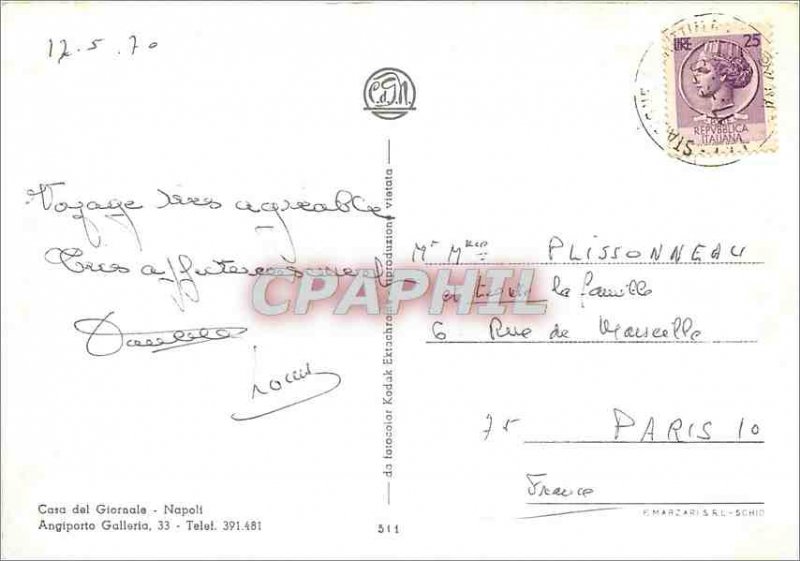 12.5.70
C.d.G.N.
LIRE 25
REPVBBLICA
ITALIANA
Voyage très agréable
Très affectueusement
Louis
CPAPHIL
da fotocolor Kodak Ektachrome riproduzione vietata
Mr Mme PLISSONNEAU
et toute la famille
6 Rue de Marseille
75 PARIS 10
France
Casa del Giornale - Napoli
Angiporto Galleria, 33 - Telef. 391.481
311
F. MARZARI S.R.L. - SCHIO